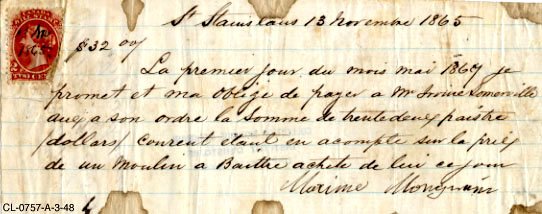 St Stanislaus 13 Novembre 1865
$32 00/
La premier jour du mois mai 1867 je
promet et ma oblige de payer a Mr Somerville
auq a son ordre la Somme de trentedeux paistre
(dollars) courent etant en acompte sur la prix
de un Moulin a Battre achete de lui ce jour
Maxime
CL-0757-A-3-48